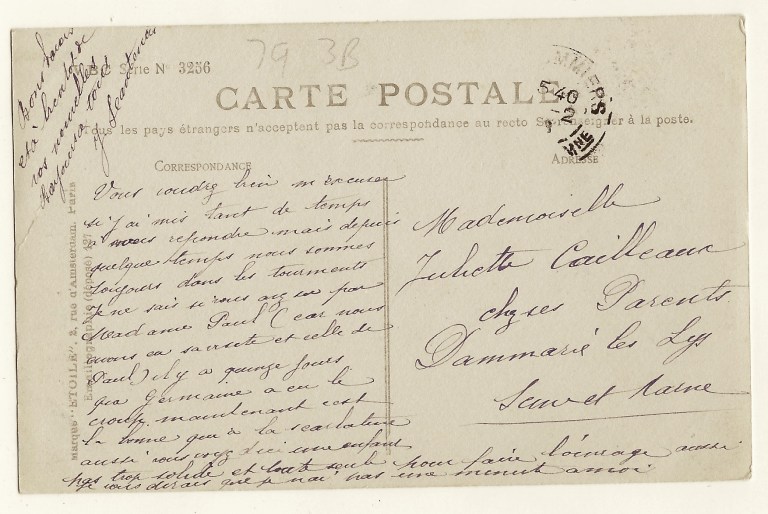 Bons baisers
et à bientôt de
vos nouvelles
toujours à toi
79 3B
Série No 3256
CARTE POSTALE
Tous les pays étrangers n'acceptent pas la correspondance au recto Se renseigner à la poste.
CORRESPONDANCE
ADRESSE
5 40
2
marque "ETOILE". 2, rue d'Amsterdam. Paris
(déposé)
Vous voudrez bien m'excuser
si j'ai mis tant de temps
a vous repondre mais depuis
quelque temps nous sommes
toujours dans les tourments
Je ne sais si vous avez su par
Madame Paul (car nous
avons eu sa visite et celle de
Paul) il y a quinze jours
que Germaine a eu le
croup. maintenant c'est
la bonne qui à la scarlatine
aussi vous voyez d'ici une enfant
pas trop solide et toute seule pour faire l'ouvrage aussi
je vous dirais que je n'ai pas une minute a moi
Mademoiselle
Juliette Cailleaux
chez ses Parents
Dammarie les Lys
Seine et Marne